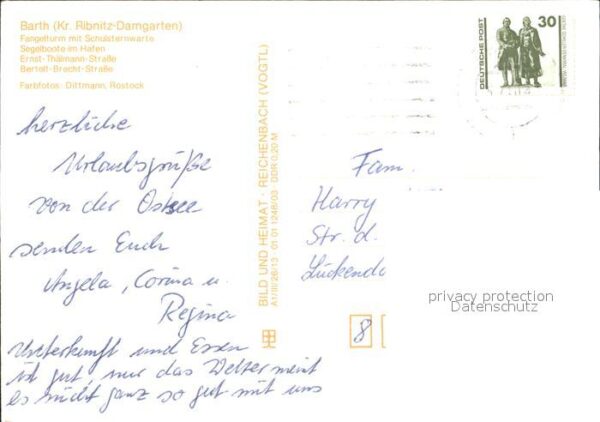 Barth (Kr. Ribnitz-Damgarten)
Fangelturm mit Schulsternwarte
Segelboote im Hafen
Ernst-Thälmann-Straße
Bertolt-Brecht-Straße
Farbfotos: Dittmann, Rostock
herzliche
Urlaubsgrüße
von der Ostsee
senden Euch
Angela, Corina u.
Regina
Unterkunft und Essen
ist gut, nur das Wetter meint
es nicht ganz so gut mit uns
BILD UND HEIMAT · REICHENBACH (VOGTL)
A1/III/26/13 01 01 1248/03 DDR 0,20 M
DEUTSCHE POST
30
Fam.
Harry
Str. d.
Lückend
8
privacy protection
Datenschutz